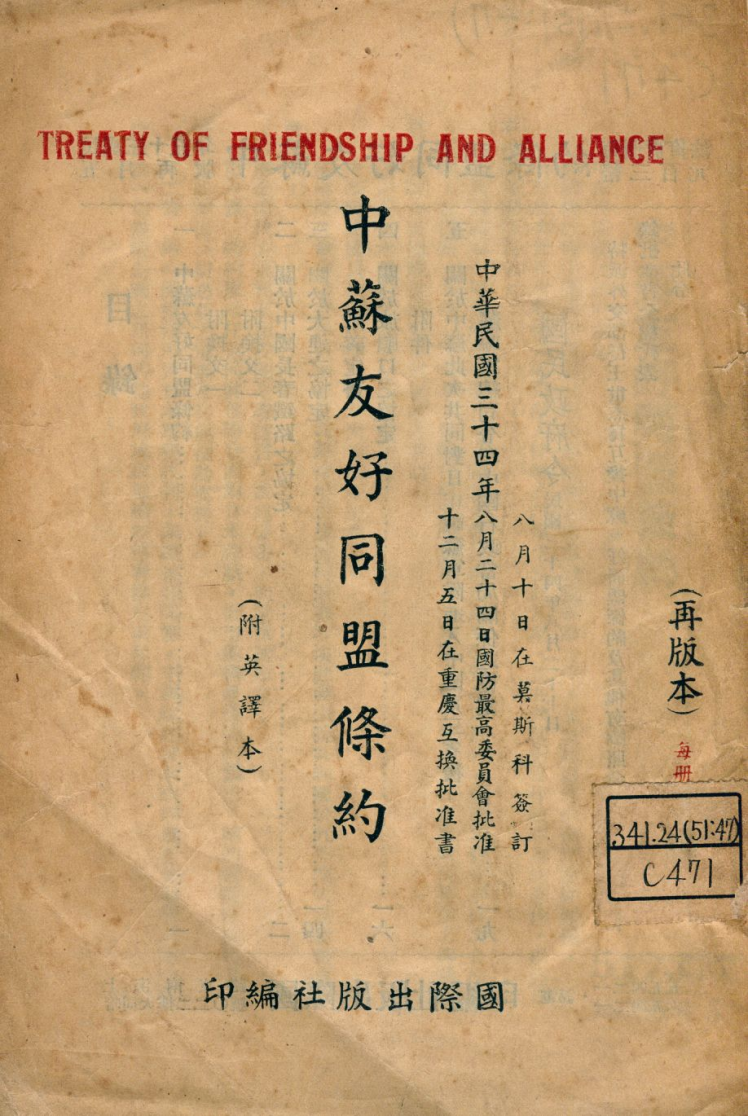 TREATY OF FRIENDSHIP AND ALLIANCE
(再版本)
每册
341.24(51:47)
C471
中華民國三十四年
八月十日在莫斯科簽訂
八月二十四日國防最高委員會批准
十二月五日在重慶互換批准書
中蘇友好同盟條約
(附英譯本)
國際出版社編印